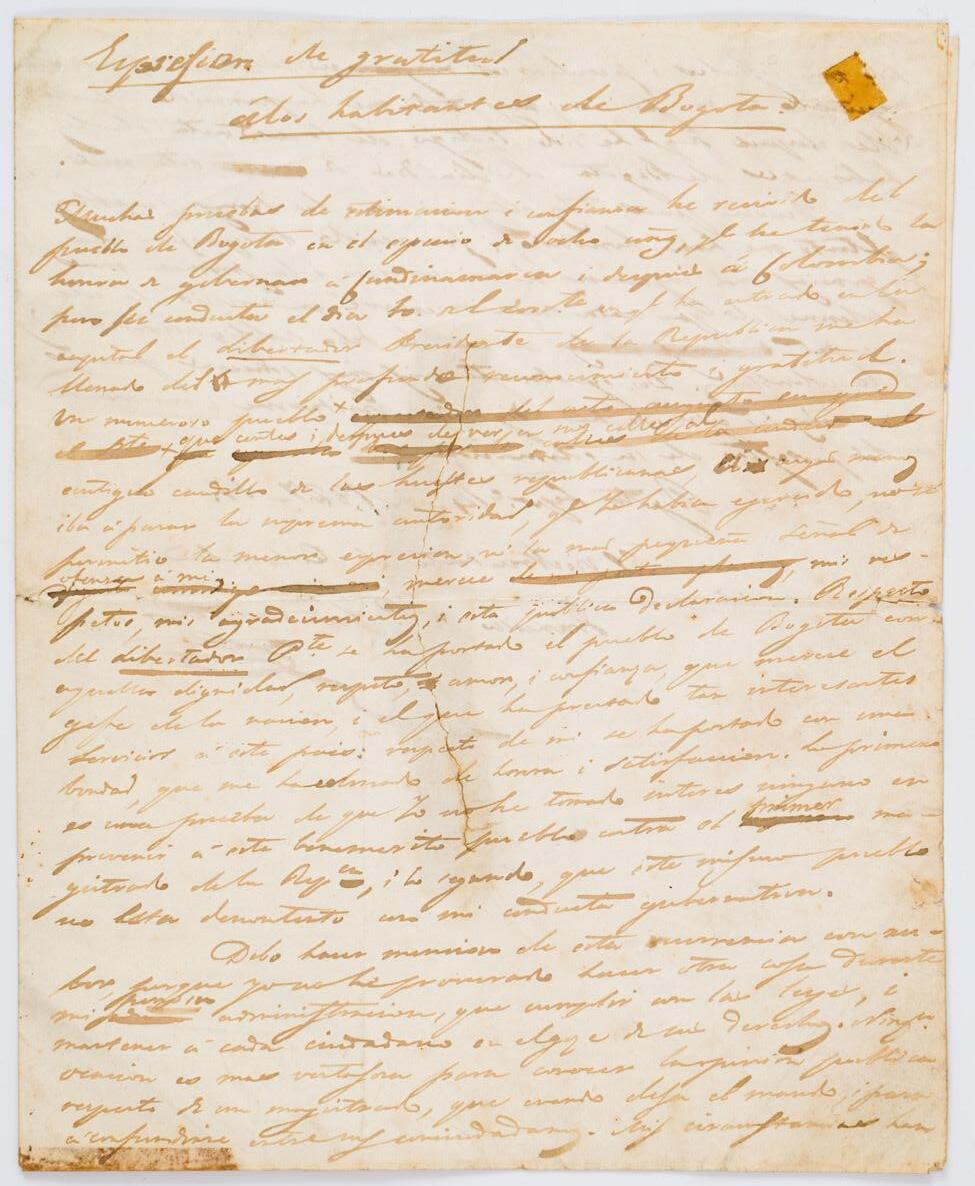 Espresion de gratitud
á los habitantes de Bogota.
Muchas pruebas de estimacion i confianza he recivido del
pueblo de Bogota en el espacio de ocho años, q.e he tenido la
honra de gobernar á Cundinamarca i despues á Colombia;
pero su conducta el dia 10. del corr.te en q.e ha entrado en la
capital el Libertador Presidente de la Republica me ha
llenado del mas profundo reconocimiento i gratitud.
Un numeroso pueblo
que antes i despues de ver en sus calles al
antiguo caudillo de las huestes republicanas, á cuyas manos
iba á parar la suprema autoridad, q.e yo habia ejercido, no se
permitio la menor expresion, ni la mas pequeña señal de
ofensa á mi, merece mis res-
petos, mis agradecimientos, i esta publica declaracion. Respecto
del Libertador P.te se ha portado el pueblo de Bogota con
aquella dignidad, respeto, amor, i confianza, que merece el
gefe de la nacion, i el que ha prestado tan interesantes
servicios á este pais: respecto de mi se ha portado con una
bondad, que me ha colmado de honra i satisfaccion. Lo primero
es una prueba de que yo no he tomado interes ninguno en
prevenir á este benemerito pueblo contra el primer ma-
gistrado de la Rep.ca, i lo segundo, que este mismo pueblo
no esta descontento con mi conducta gubernativa.
Debo hacer mencion de esta ocurrencia con
porque yo no he procurado hacer otra cosa durante
mi administracion, que cumplir con las leyes, i
mantener á cada ciudadano en el goze de sus derechos. Ning.a
ocasion es mas ventajosa para conocer la opinion publica
respecto de un magistrado, que cuando deja el mando, i pasa
á confundirse entre sus conciudadanos. Mis circunstancias han